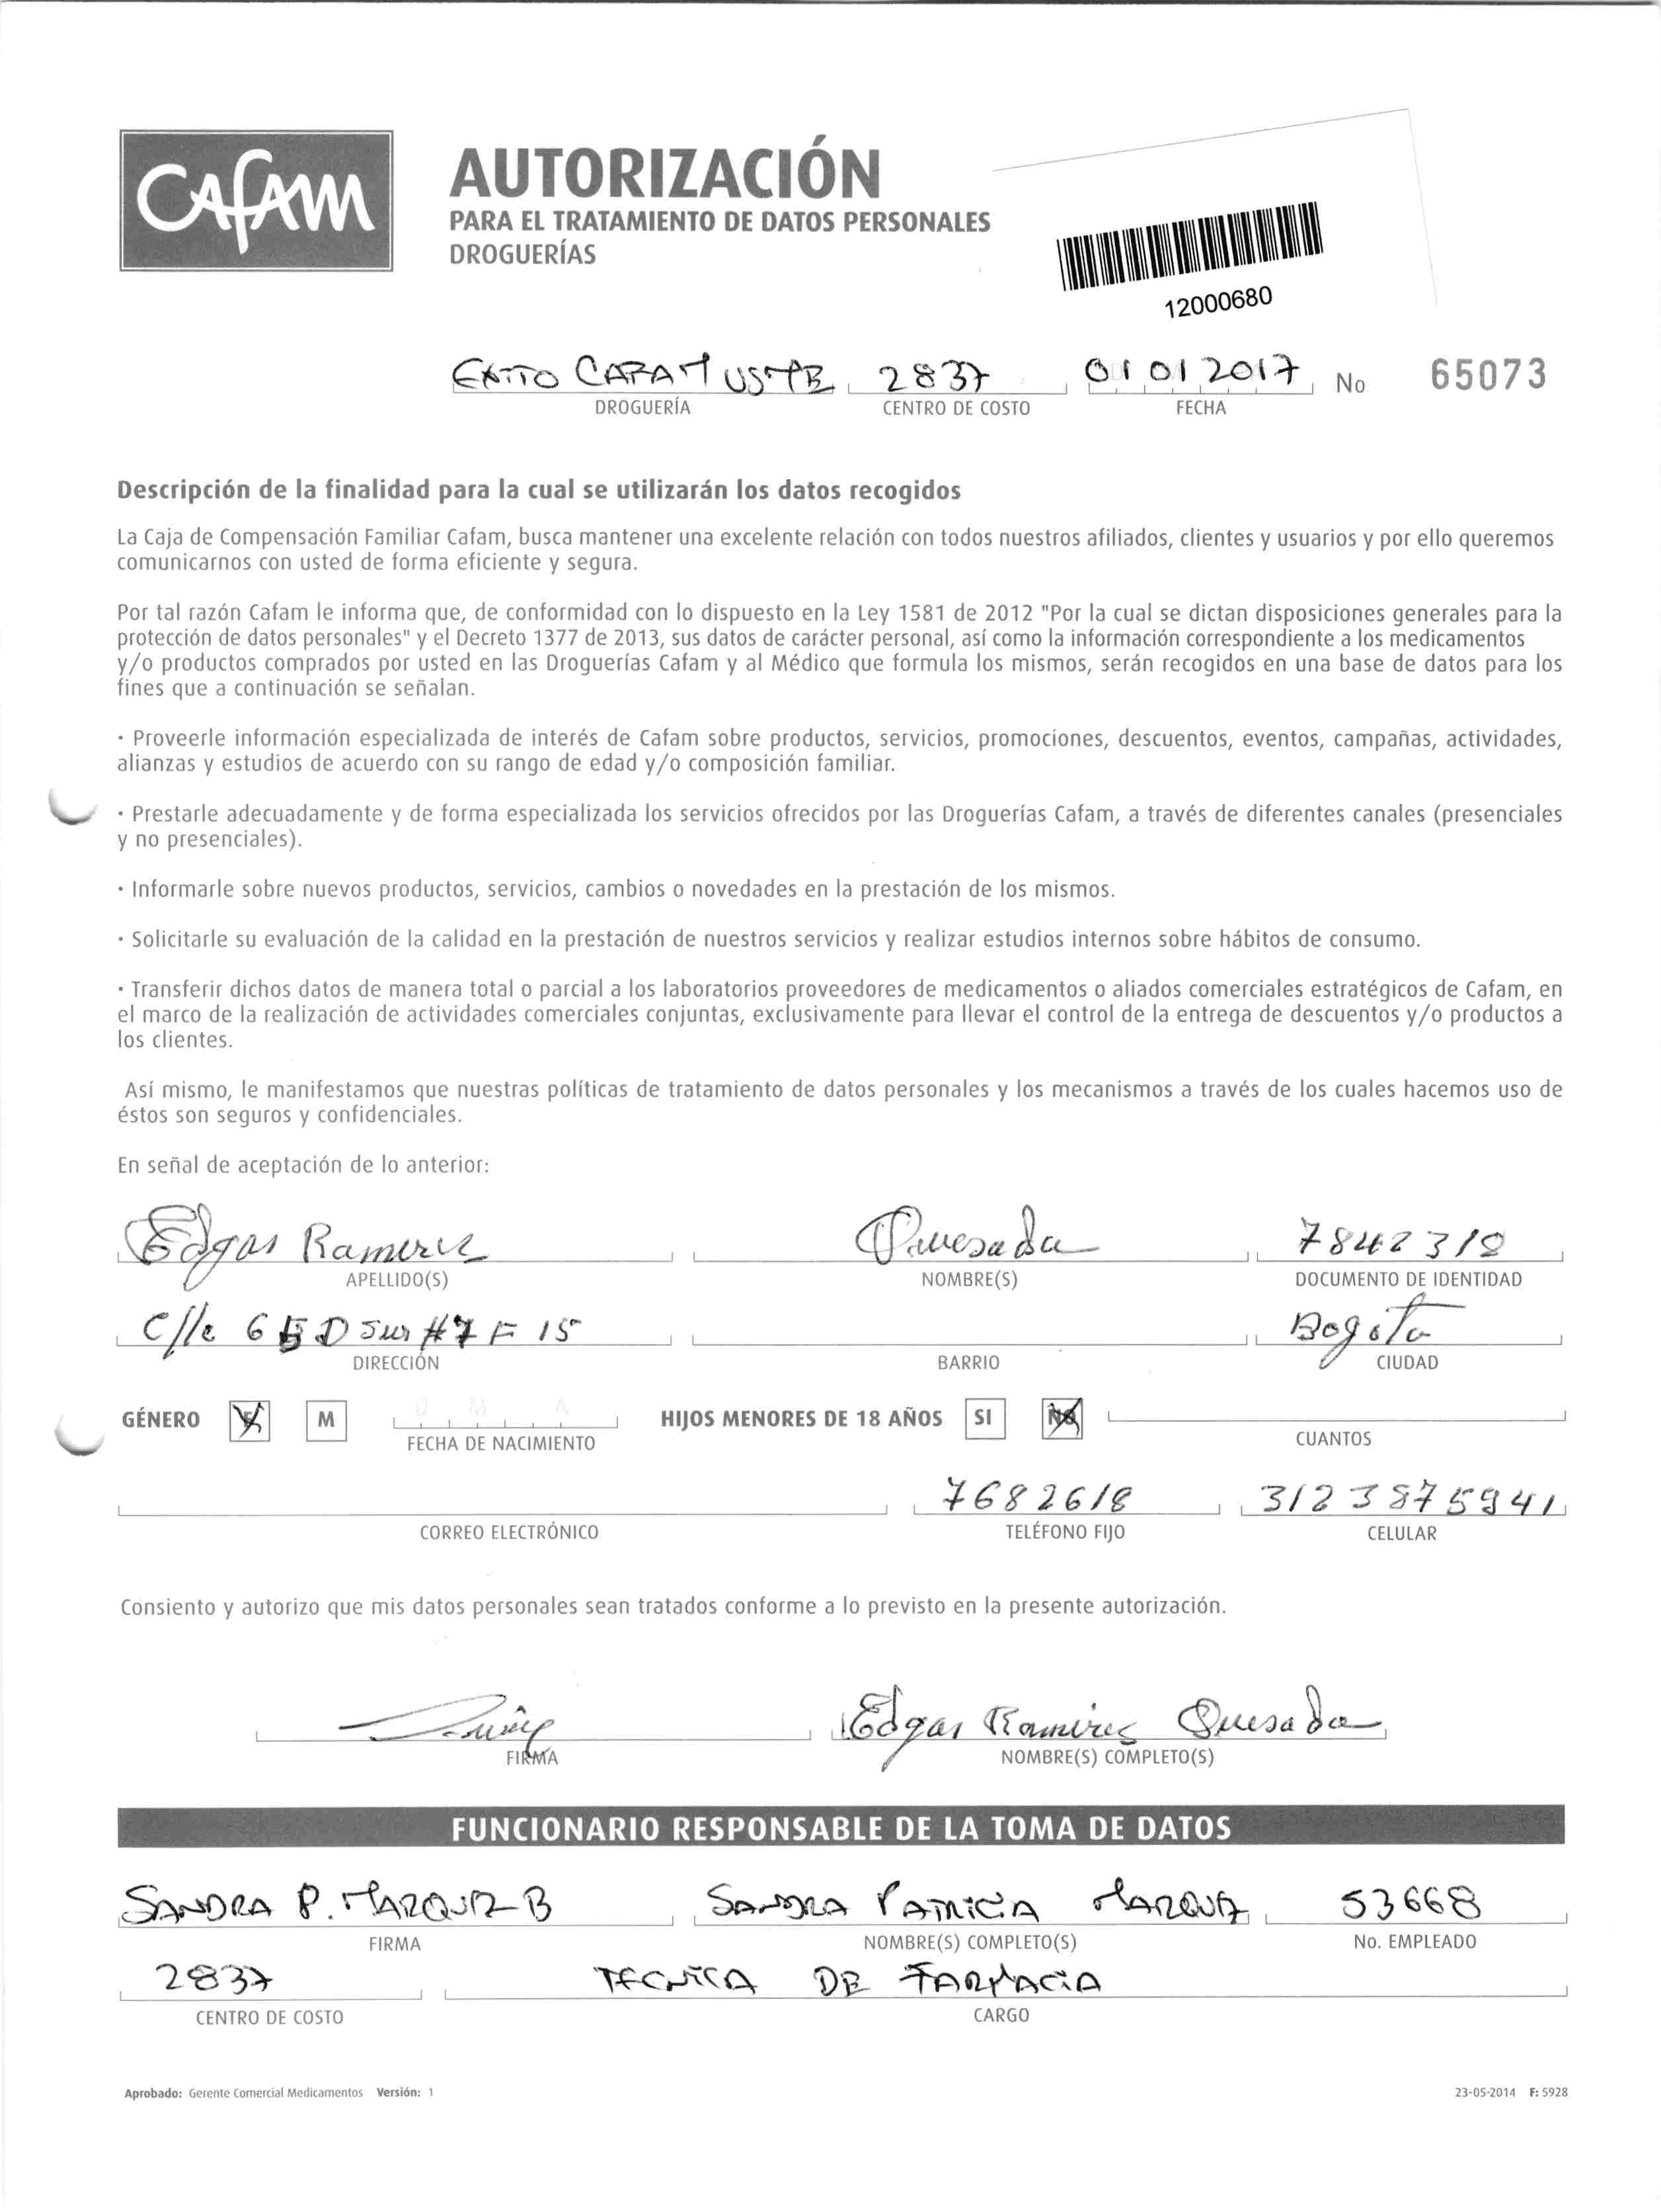 CAFAM
AUTORIZACIÓN
PARA EL TRATAMIENTO DE DATOS PERSONALES
DROGUERÍAS
12000680
EXITO 2837 01 01 2017 No 65073
DROGUERÍA CENTRO DE COSTO FECHA
Descripción de la finalidad para la cual se utilizarán los datos recogidos
La Caja de Compensación Familiar Cafam, busca mantener una excelente relación con todos nuestros afiliados, clientes y usuarios y por ello queremos
comunicarnos con usted de forma eficiente y segura.
Por tal razón Cafam le informa que, de conformidad con lo dispuesto en la Ley 1581 de 2012 "Por la cual se dictan disposiciones generales para la
protección de datos personales" y el Decreto 1377 de 2013, sus datos de carácter personal, así como la información correspondiente a los medicamentos
y/o productos comprados por usted en las Droguerías Cafam y al Médico que formula los mismos, serán recogidos en una base de datos para los
fines que a continuación se señalan.
· Proveerle información especializada de interés de Cafam sobre productos, servicios, promociones, descuentos, eventos, campañas, actividades,
alianzas y estudios de acuerdo con su rango de edad y/o composición familiar.
· Prestarle adecuadamente y de forma especializada los servicios ofrecidos por las Droguerías Cafam, a través de diferentes canales (presenciales
y no presenciales).
· Informarle sobre nuevos productos, servicios, cambios o novedades en la prestación de los mismos.
· Solicitarle su evaluación de la calidad en la prestación de nuestros servicios y realizar estudios internos sobre hábitos de consumo.
· Transferir dichos datos de manera total o parcial a los laboratorios proveedores de medicamentos o aliados comerciales estratégicos de Cafam, en
el marco de la realización de actividades comerciales conjuntas, exclusivamente para llevar el control de la entrega de descuentos y/o productos a
los clientes.
Así mismo, le manifestamos que nuestras políticas de tratamiento de datos personales y los mecanismos a través de los cuales hacemos uso de
éstos son seguros y confidenciales.
En señal de aceptación de lo anterior:
Edgar Ramirez Quesada 7842318
APELLIDO(S) NOMBRE(S) DOCUMENTO DE IDENTIDAD
C/le 6 D Sur #7 F 15 Bogota
DIRECCIÓN BARRIO CIUDAD
GÉNERO M D M A HIJOS MENORES DE 18 AÑOS SI NO
FECHA DE NACIMIENTO CUANTOS
7682618 3123875941
CORREO ELECTRÓNICO TELÉFONO FIJO CELULAR
Consiento y autorizo que mis datos personales sean tratados conforme a lo previsto en la presente autorización.
Edgar Ramirez Quesada
FIRMA NOMBRE(S) COMPLETO(S)
FUNCIONARIO RESPONSABLE DE LA TOMA DE DATOS
SANDRA P. MARQUEZ B SANDRA PATRICIA MARQUEZ 53668
FIRMA NOMBRE(S) COMPLETO(S) No. EMPLEADO
2837 TECNICA DE FARMACIA
CENTRO DE COSTO CARGO
Aprobado: Gerente Comercial Medicamentos Versión: 1 23-05-2014 F: 5928